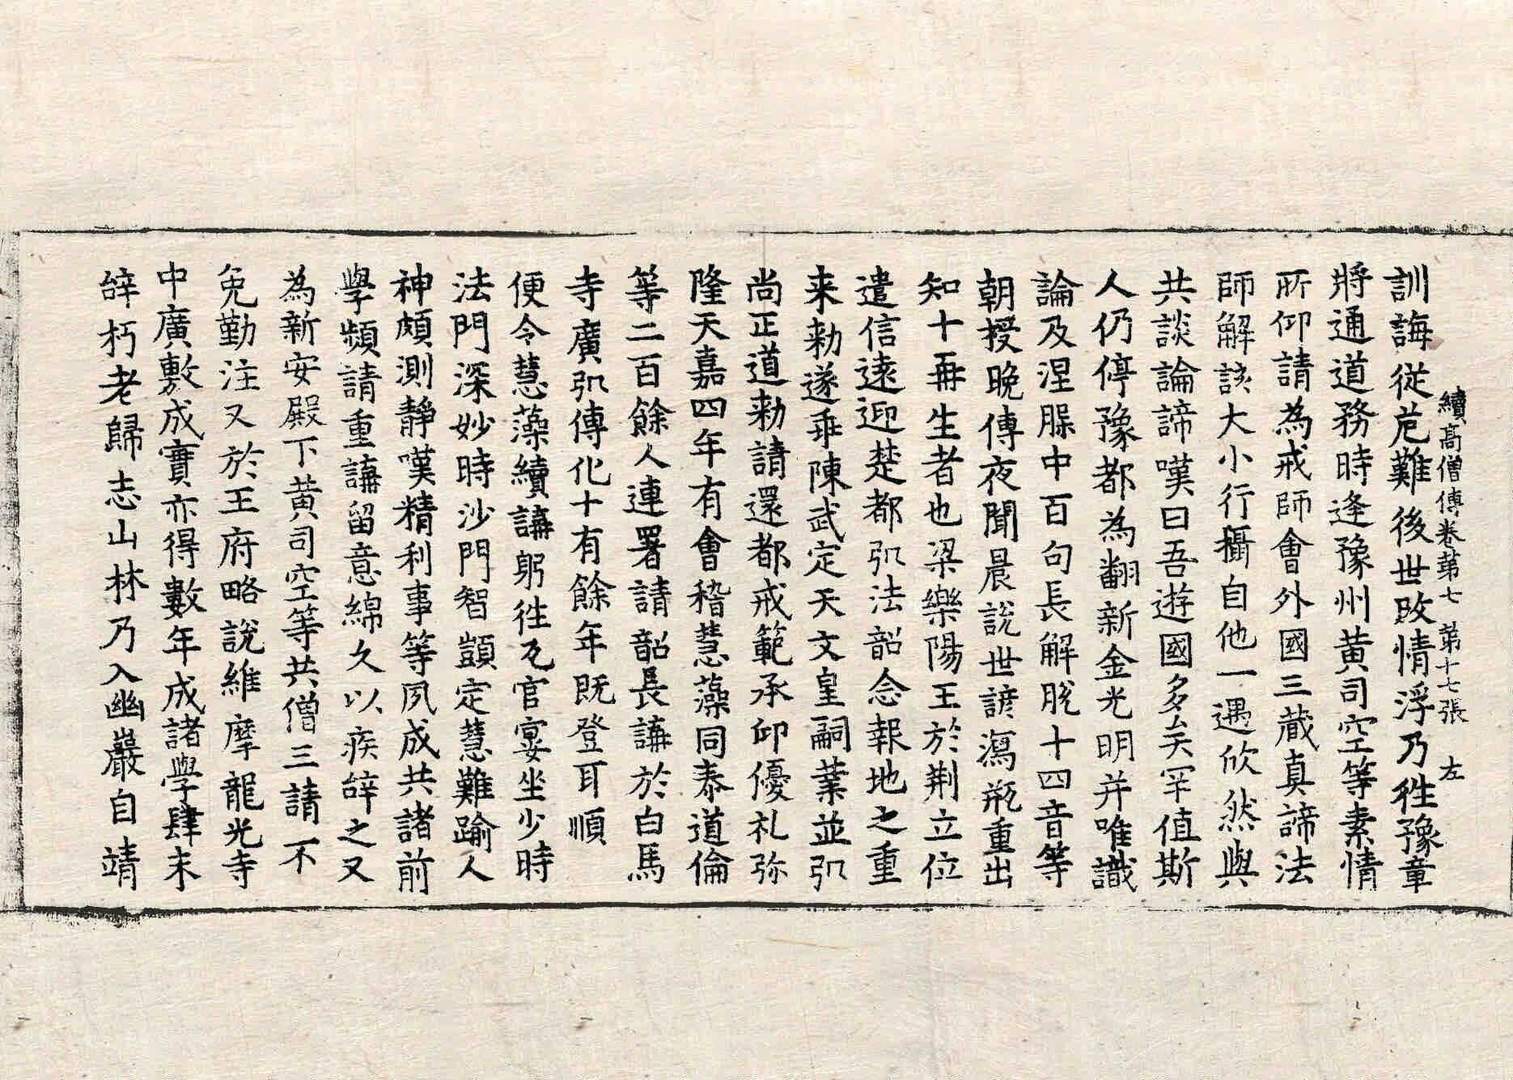 續高僧傳卷苐七　苐十七張　左
訓誨從危難後世敗情浮乃徃豫章
將通道務時逢豫州黄司空等素情
所仰請為戒師會外國三藏真諦法
師解該大小行攝自他一遇欣然與
共談論諦嘆曰吾遊國多矣罕值斯
人仍停豫都為翻新金光明并唯識
論及涅脲中百句長解脫十四音等
朝授晚傳夜聞晨說世諺瀉瓶重出
知十再生者也梁樂陽王於荆立位
遣信遠迎楚都弘法韶念報地之重
来勅遂乖陳武定天文皇嗣業並弘
尚正道勅請還都戒範承仰優礼弥
隆天嘉四年有會稽慧藻同泰道倫
等二百餘人連署請韶長講於白馬
寺廣弘傳化十有餘年既登耳順
便令慧藻續講躬徃瓦官宴坐少時
法門深妙時沙門智顗定慧難踰人
神頗測靜嘆精利事等夙成共諸前
學頻請重講留意綿久以疾辝之又
為新安殿下黄司空等共僧三請不
免勤注又於王府略說維摩龍光寺
中廣敷成實亦得數年成諸學肆末
辝朽老歸志山林乃入幽巖自靖